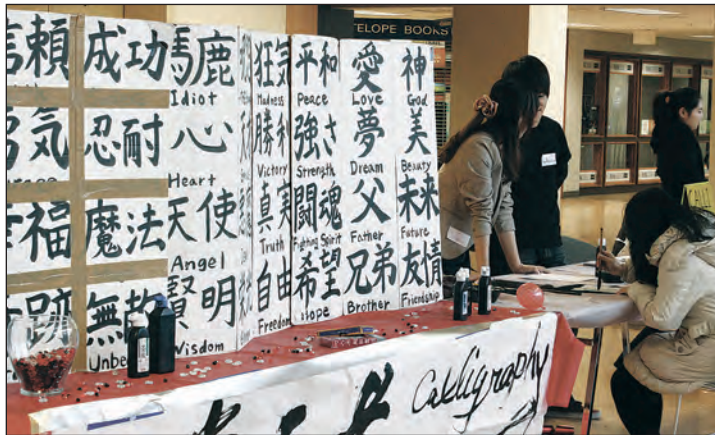 TELOPE BOOKS
頼
気
福
跡
成功
忍耐
魔法
無
Unbe
馬鹿
Idiot
心
Heart
天使
Angel
賢明
Wisdom
狂気
Madness
勝利
Victory
真実
Truth
自由
Freedom
平和
Peace
強さ
Strength
闘魂
Fighting Spirit
希望
Hope
愛
Love
夢
Dream
父
Father
兄弟
Brother
神
God
美
Beauty
未来
Future
友情
Friendship
CALLI
Calligraphy